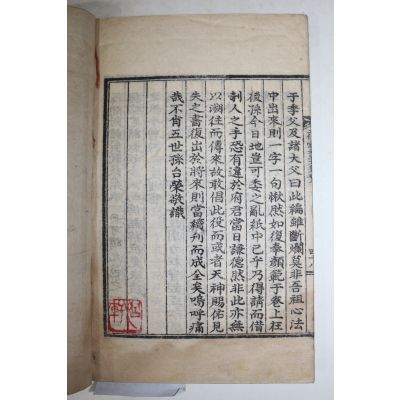 于季父及諸大父曰此編雖斷爛莫非吾祖心法
中出來則一字一句愀然如復奉顔範于卷上在
後孫今日地豈可委之亂紙中已乎乃得請而借
剞人之手恐有違於府君當日謙德然非此亦無
以溯往而傳來故敢倡此役而或者天神賜佑見
失之書復出於將來則當續刋而成全矣嗚呼痛
哉不肖五世孫台榮敬識